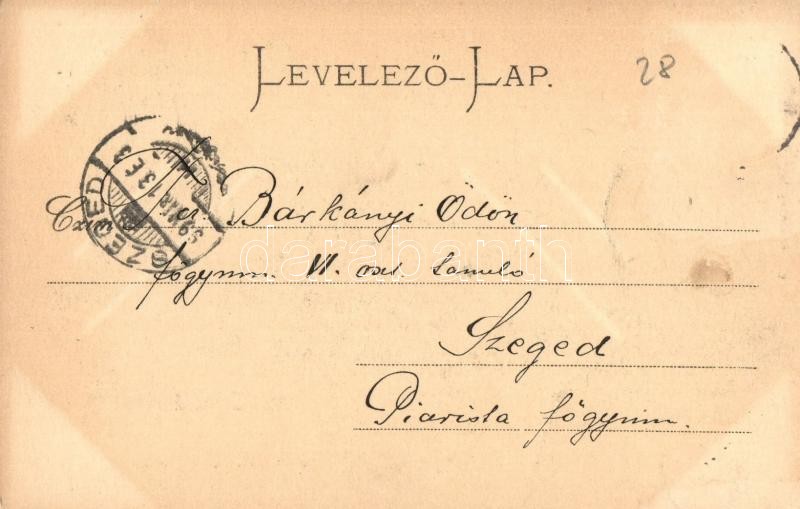 LEVELEZŐ-LAP.
28
SZEGED
Czim Bárkányi Ödön
főgymn. VI. oszt. tanuló
Szeged
Piarista főgymn.
darabanth